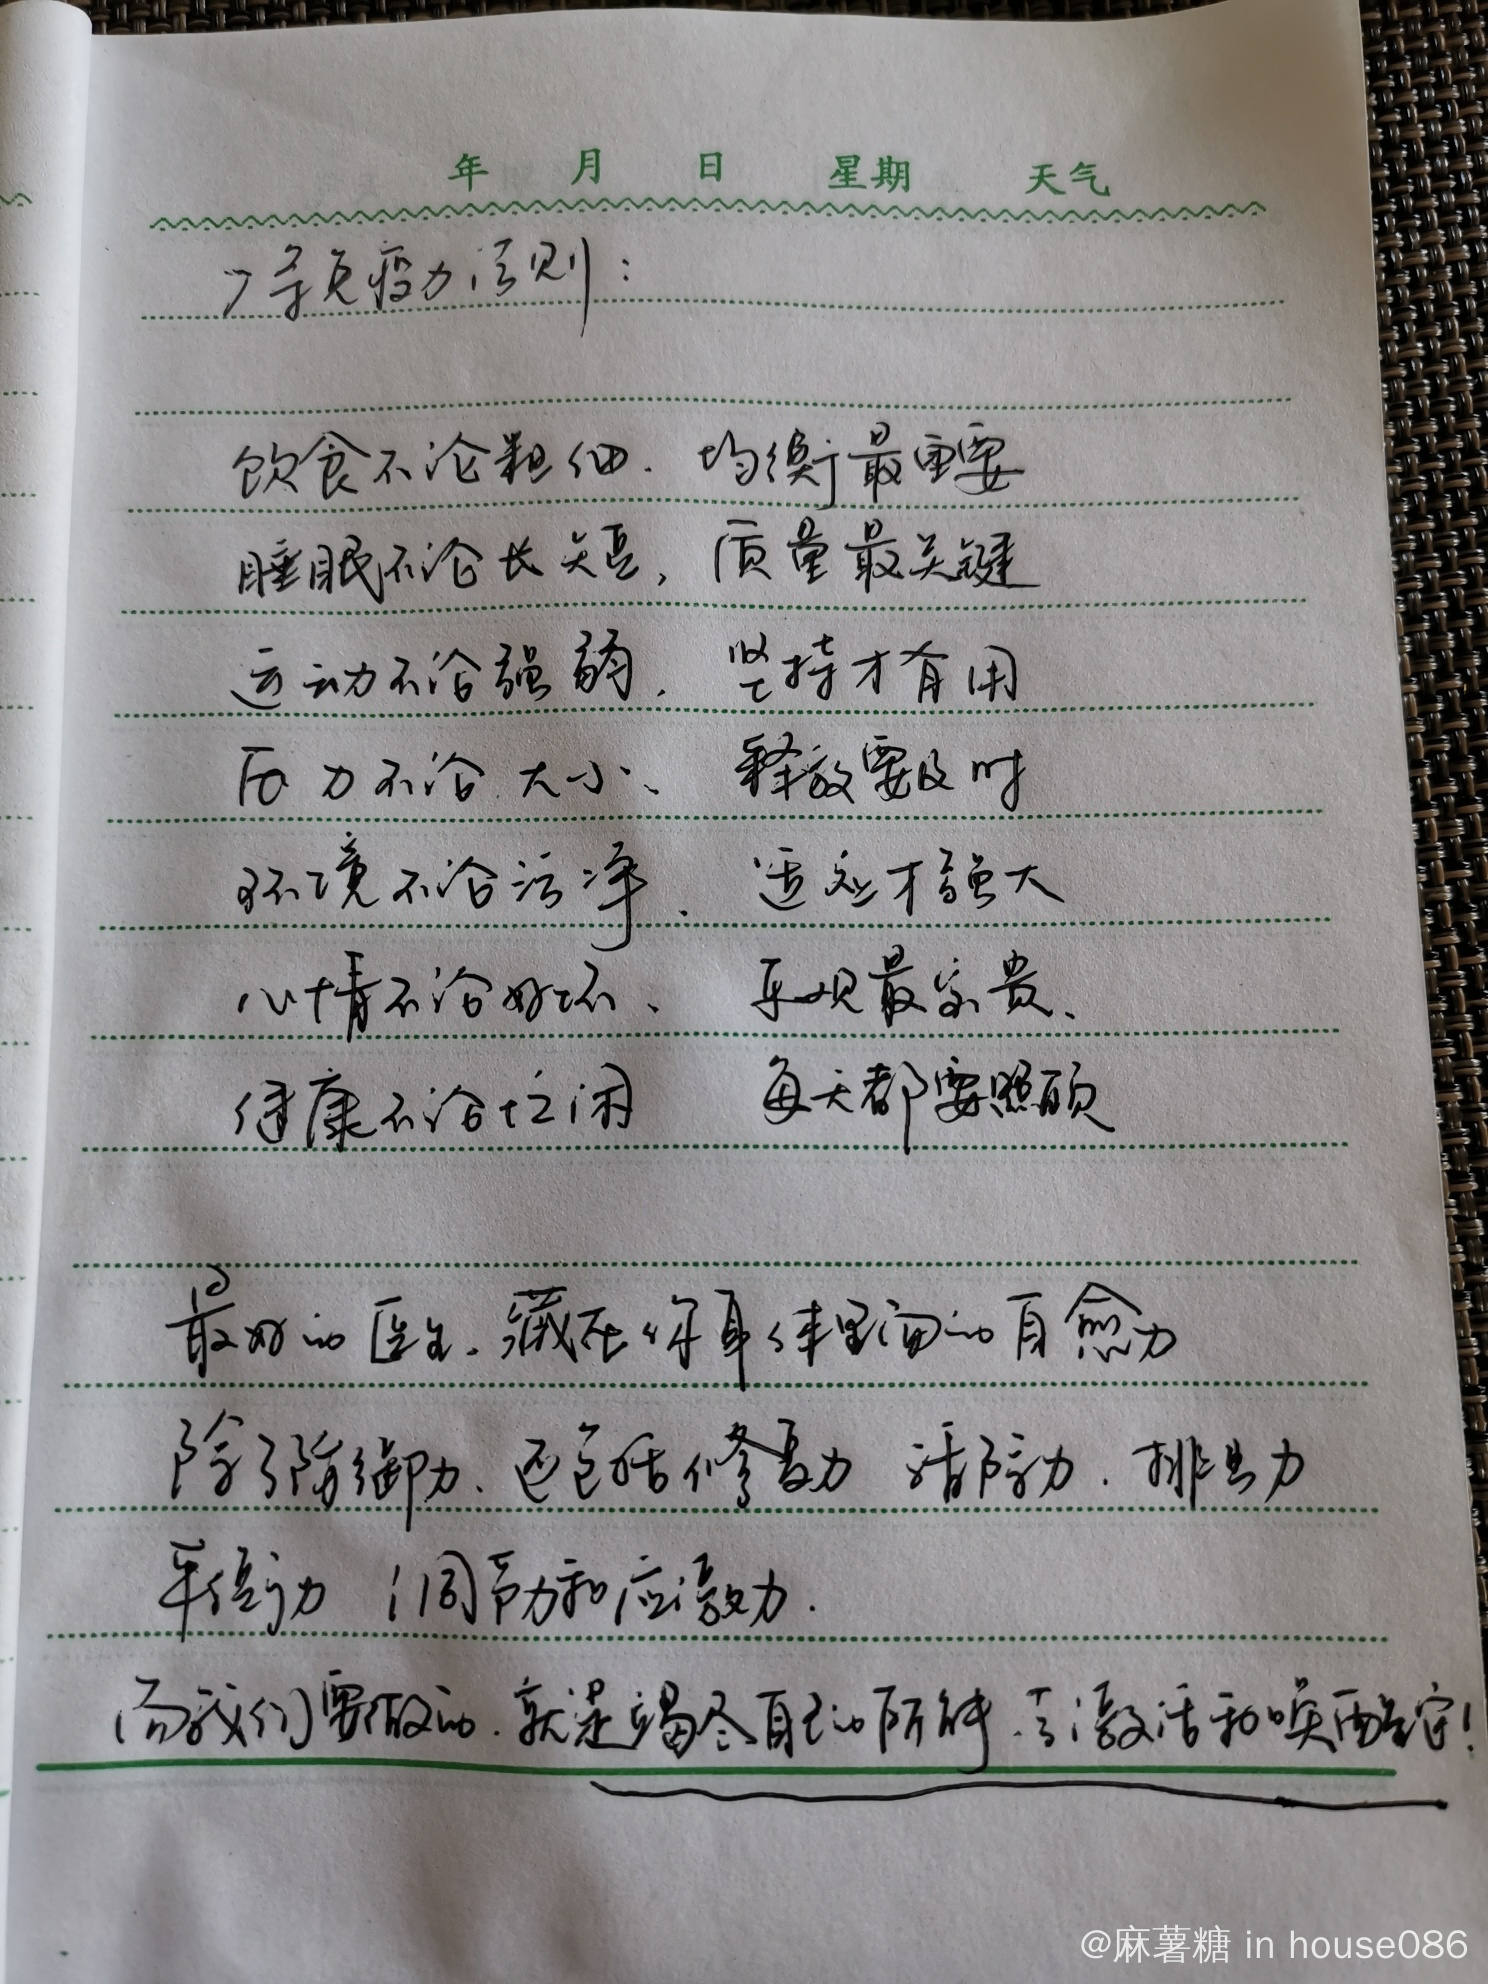 年 月 日 星期 天气
7条免疫力法则：
饮食不论粗细. 均衡最重要
睡眠不论长短, 质量最关键
运动不论强弱. 坚持才有用
压力不论大小、 释放要及时
环境不论污净. 适应才强大
心情不论好坏、 乐观最宝贵、
健康不论忙闲 每天都要照顾
最好的医生. 藏在你身体里面的自愈力
除了防御力、还包括修复力 清除力. 排异力
平衡力 调节力和应激力.
而我们要做的. 就是竭尽自己的所能. 去激活和唤醒它!
@麻薯糖 in house086